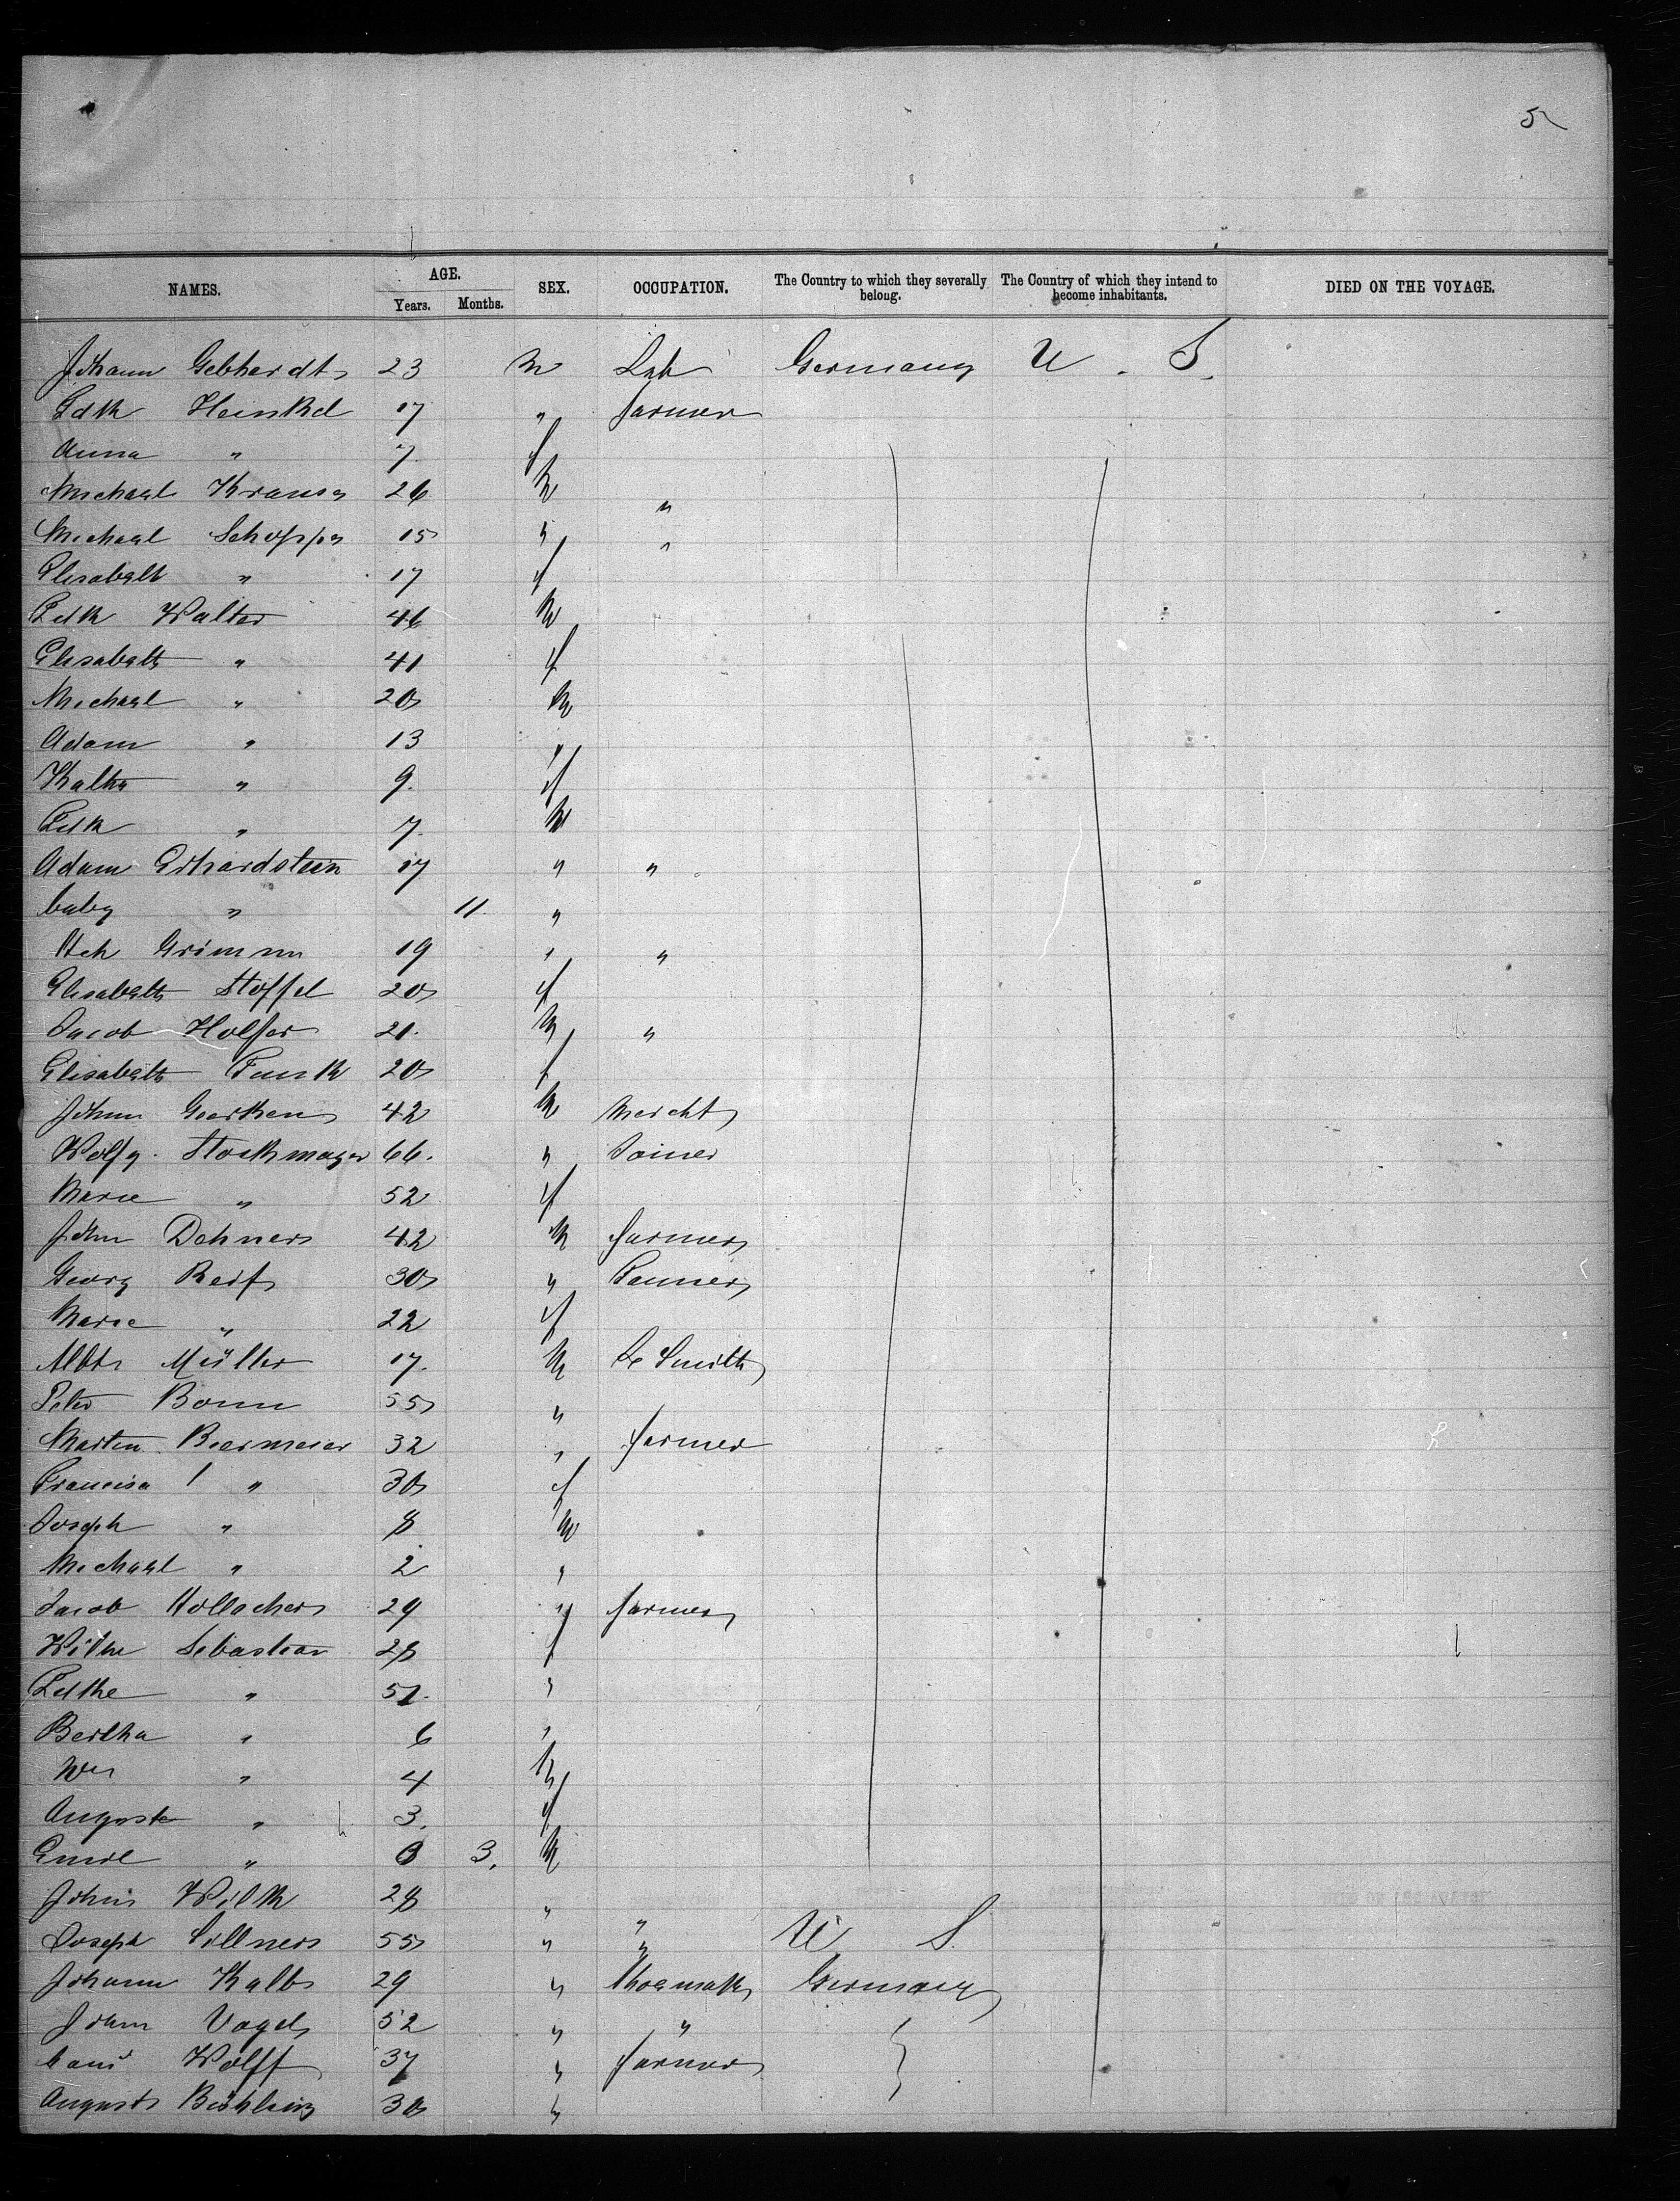 5
NAMES. AGE. Years. Months. SEX. OCCUPATION. The Country to which they severally belong. The Country of which they intend to become inhabitants. DIED ON THE VOYAGE.
Johann Gebhardt 23 m Lab Germany U. S.
Heinkel 17 " farmer
Anna " 7. f
Michael Krause 26 m "
Michael Schoppe 15 " "
Elisabeth " 17 f
Walter 46 m
Elisabeth " 41 f
Michael " 20 m
Adam " 13 "
Kathe " 9. f
" 7. m
Adam Erhardstein 17 " "
baby " 11. "
Hch Grimm 19 " "
Elisabeth Stoffel 20 f
Jacob Holfer 21. m "
Elisabeth Funk 20 f
Johann Geerken 42 m Mercht
Wolfg. Stockmayer 66. " Joiner
Marie " 52 f
John Dehner 42 m farmer
Georg Reif 30 " Tanner
Marie " 22 f
Albt Müller 17. m Smith
Peter Bonn 55 "
Martin Beermeier 32 " farmer
Francisa " 30 f
Joseph " 8 m
Michael " 2 "
Jacob Hollacher 29 " farmer
Wilhe Sebastian 28 f
" 51. "
Bertha " 6 "
Wm " 4 m
Auguste " 3. f
Emil " 0 3. m
Johns Wilk 28 " "
Joseph Sillner 55 " " U S.
Johann Kalb 29 " Shoemak Germany
Johann Vogel 52 " "
Wolff 37 " farmer
August Bühling 30 "